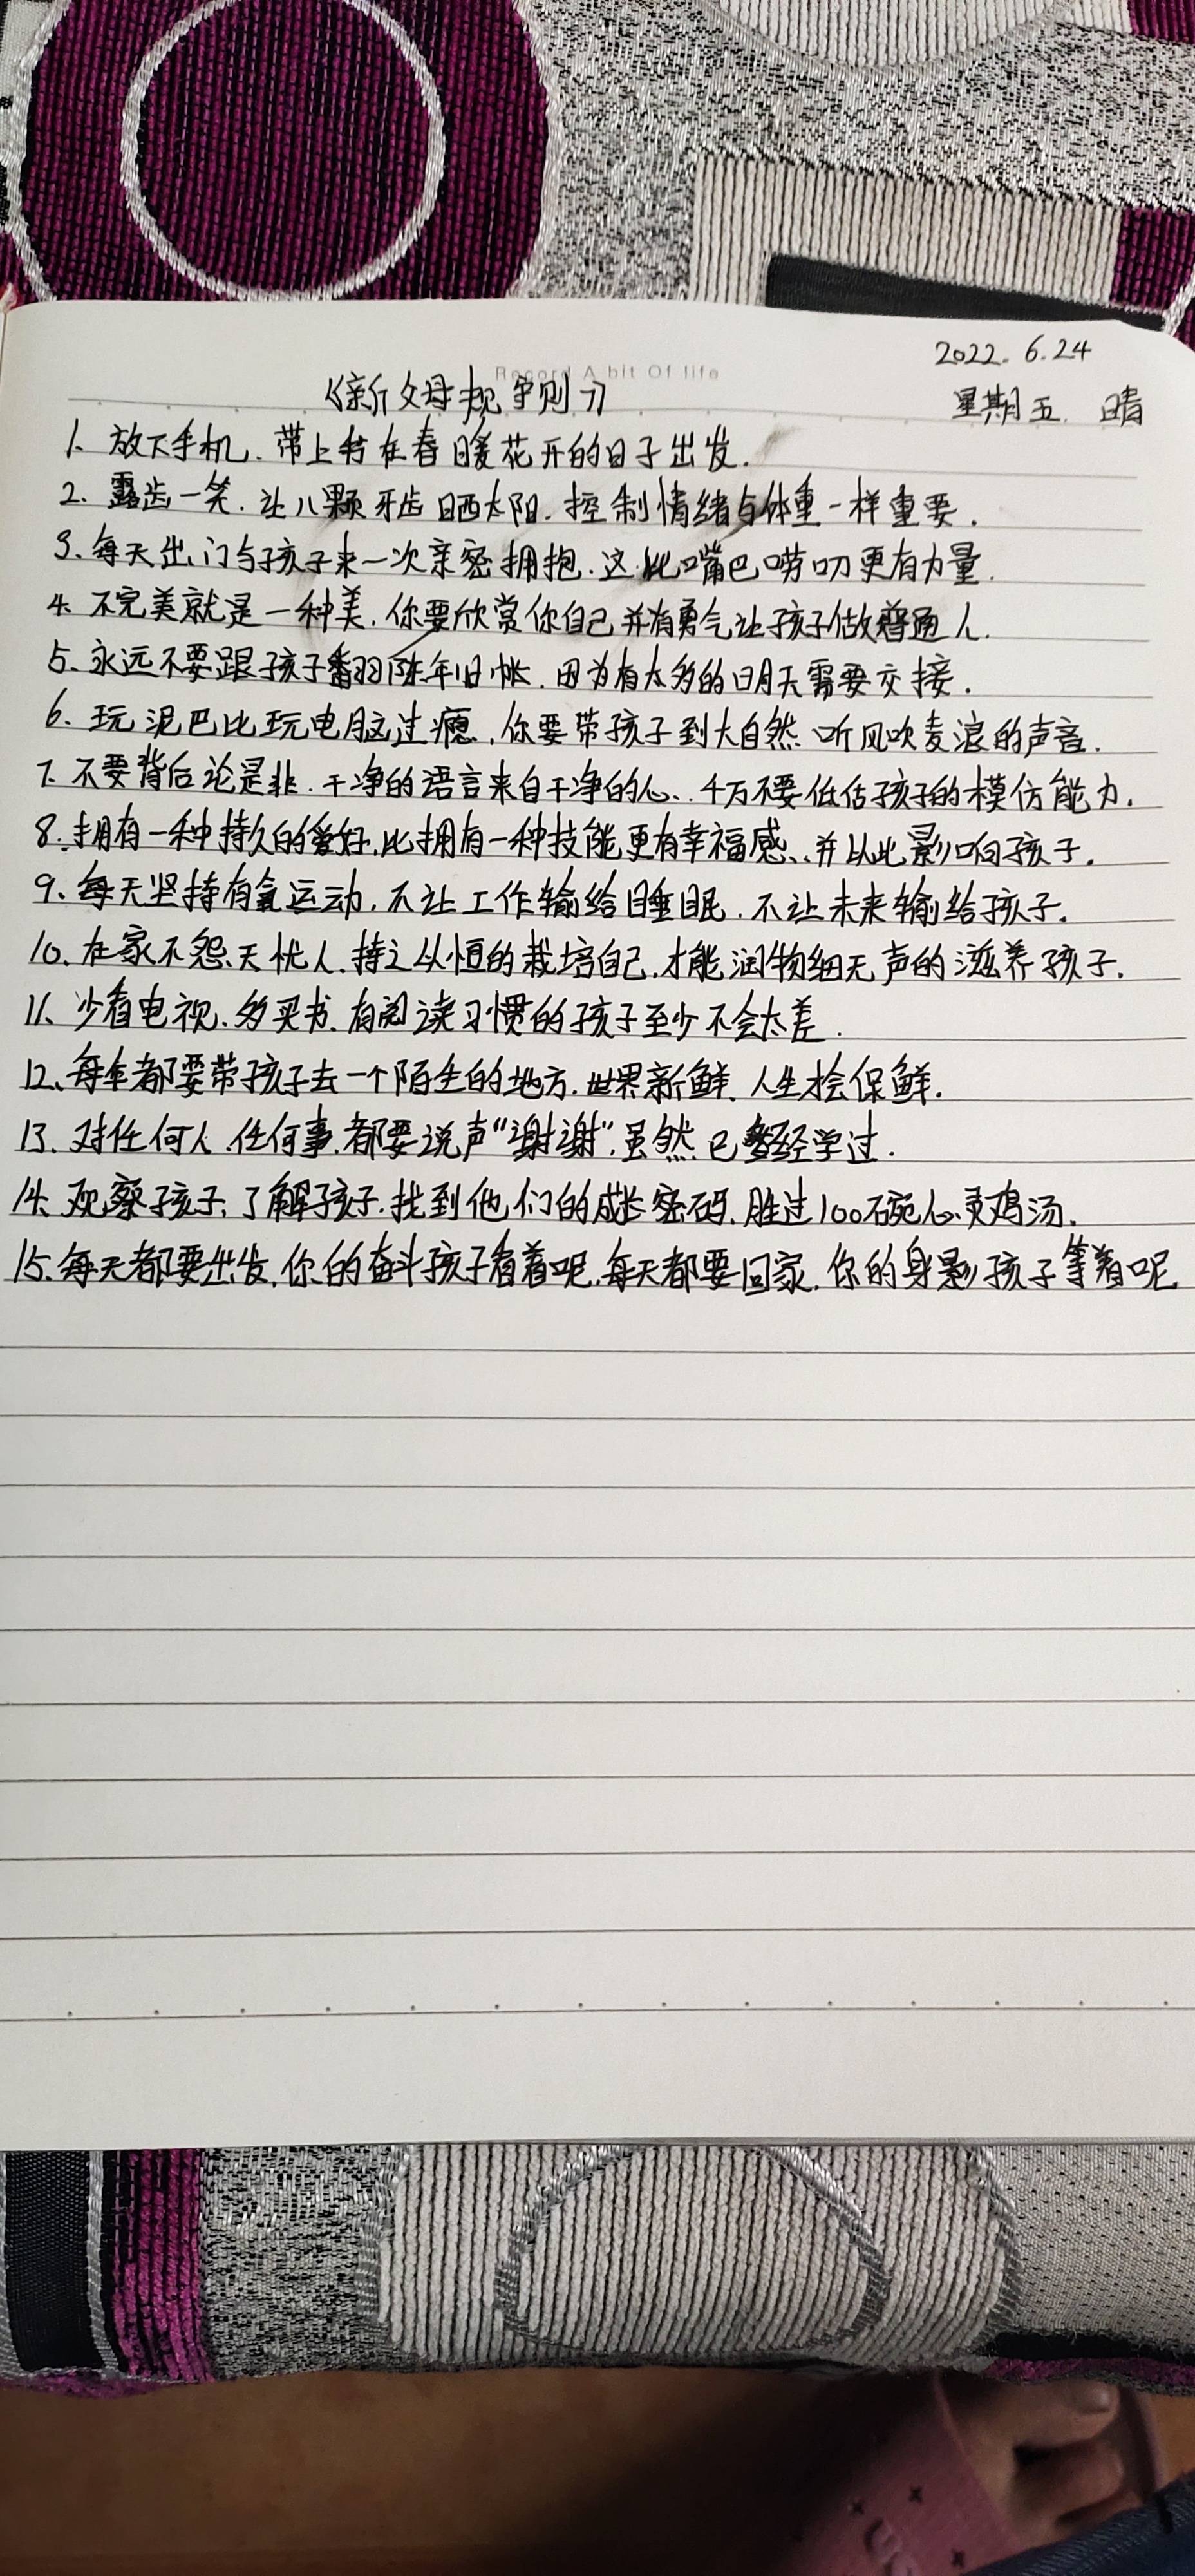 2022.6.24
Record A bit Of life
《新父母规守则》
星期五 晴
1、放下手机、带上书在春暖花开的日子出发.
2、露齿一笑、让八颗牙齿晒太阳、控制情绪与体重一样重要.
3、每天出门与孩子来一次亲密拥抱、这比嘴巴唠叨更有力量.
4、不完美就是一种美,你要欣赏你自己并有勇气让孩子做普通人.
5、永远不要跟孩子翻陈年旧帐、因为有太多的明天需要交接.
6、玩泥巴比玩电脑过瘾,你要带孩子到大自然、听风吹麦浪的声音.
7、不要背后论是非、干净的语言来自干净的心、千万不要低估孩子的模仿能力.
8、拥有一种持久的爱好,比拥有一种技能更有幸福感、并以此影响孩子.
9、每天坚持有氧运动,不让工作输给睡眠、不让未来输给孩子.
10、在家不怨天忧人、持之以恒的栽培自己,才能润物细无声的滋养孩子.
11、少看电视、多买书、有阅读习惯的孩子至少不会太差.
12、每年都要带孩子去一个陌生的地方、世界新鲜、人生才会保鲜.
13、对任何人、任何事、都要说声“谢谢”,虽然已经学过.
14、观察孩子、了解孩子、找到他们的成长密码、胜过100碗心灵鸡汤.
15、每天都要出发,你的奋斗孩子看着呢,每天都要回家,你的身影孩子等着呢